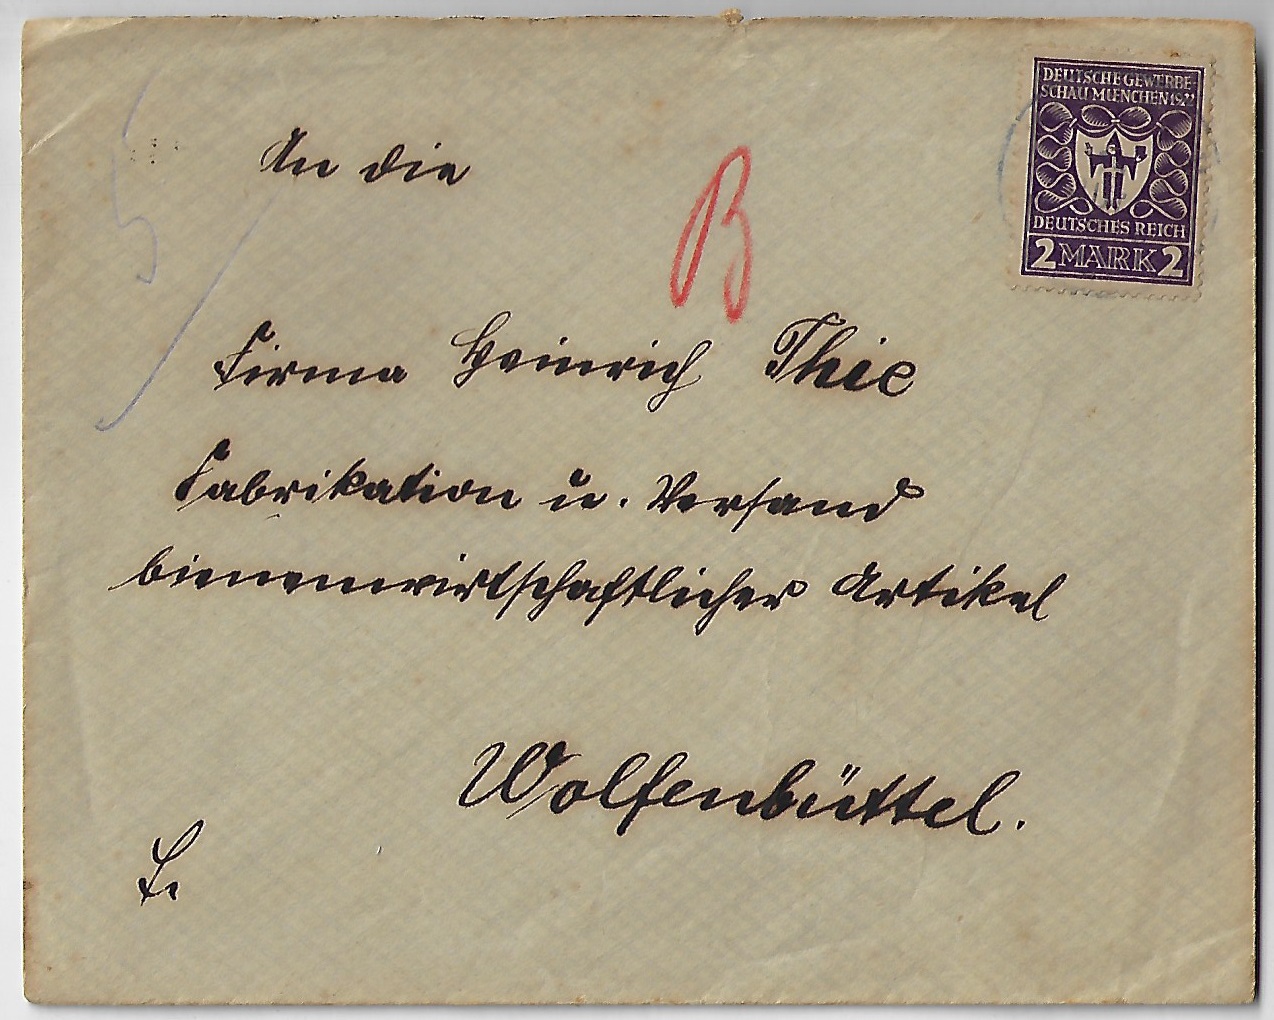 DEUTSCHE GEWERBE-
SCHAU MUENCHEN 1922
DEUTSCHES REICH
2 MARK 2
An die
B
Firma Heinrich Thie
Fabrikation u. Versand
bienenwirtschaftlicher Artikel
Wolfenbüttel.